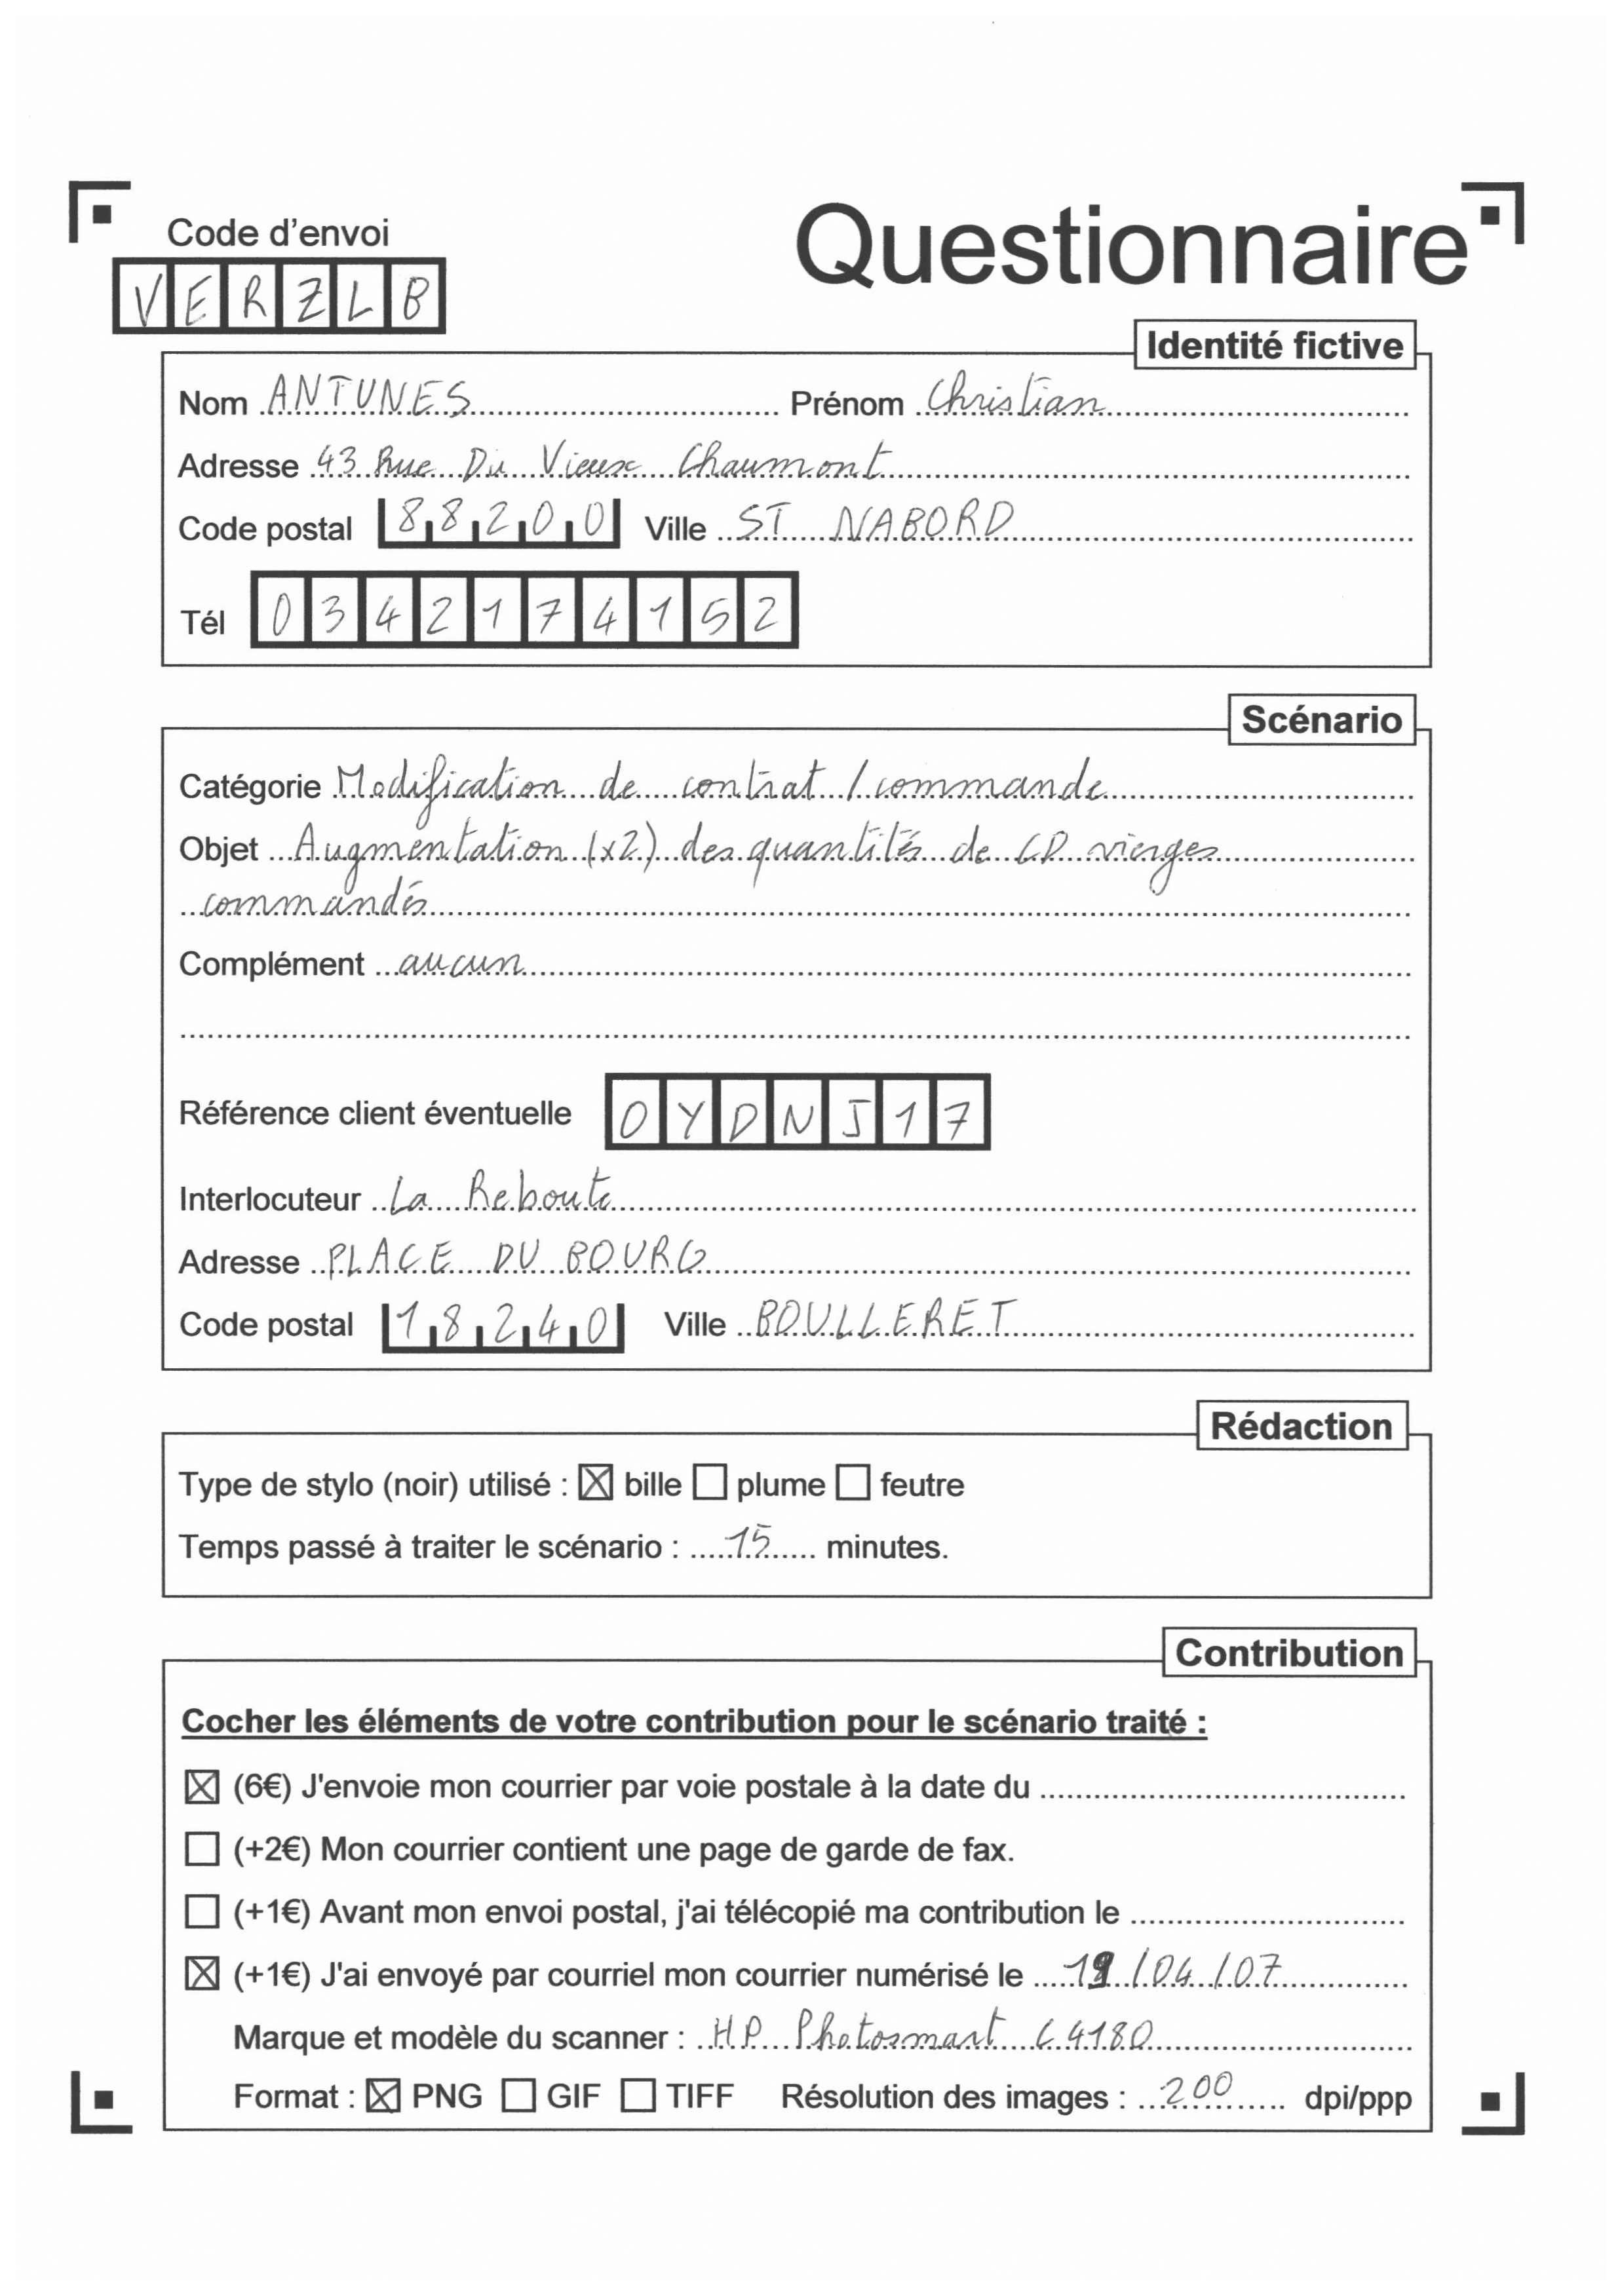 Code d'envoi
Questionnaire
VERZLB
Identité fictive
Nom ANTUNES Prénom Christian
Adresse 43 Rue Du Vieux Chaumont
Code postal 88200 Ville ST NABORD
Tél 0342174152
Scénario
Catégorie Modification de contrat / commande
Objet Augmentation (x2) des quantités de CD vierges
commandés
Complément aucun
Référence client éventuelle OYDNJ17
Interlocuteur La Reboute
Adresse PLACE DU BOURG
Code postal 18240 Ville BOULLERET
Rédaction
Type de stylo (noir) utilisé : ☒ bille ☐ plume ☐ feutre
Temps passé à traiter le scénario : 15 minutes.
Contribution
Cocher les éléments de votre contribution pour le scénario traité :
☒ (6€) J'envoie mon courrier par voie postale à la date du
☐ (+2€) Mon courrier contient une page de garde de fax.
☐ (+1€) Avant mon envoi postal, j'ai télécopié ma contribution le
☒ (+1€) J'ai envoyé par courriel mon courrier numérisé le /04/07
Marque et modèle du scanner : HP Photosmart C4180
Format : ☒ PNG ☐ GIF ☐ TIFF Résolution des images : 200 dpi/ppp